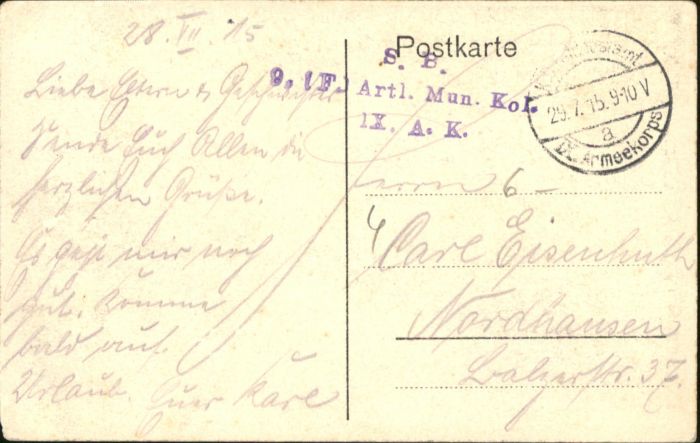 28. VII. 15
Liebe Eltern & Geschwister
Sende Euch Allen die
herzlichen Grüße.
Es geht mir noch
gut. Komme
bald auf
Urlaub. Euer Karl
Postkarte
S. B.
9. (F.) Artl. Mun. Kol.
IX. A. K.
29.7.15. 9-10 V
a
IX. Armeekorps
Herrn 6
4
Carl Eisenhuth
Nordhausen
Balzerstr. 37.